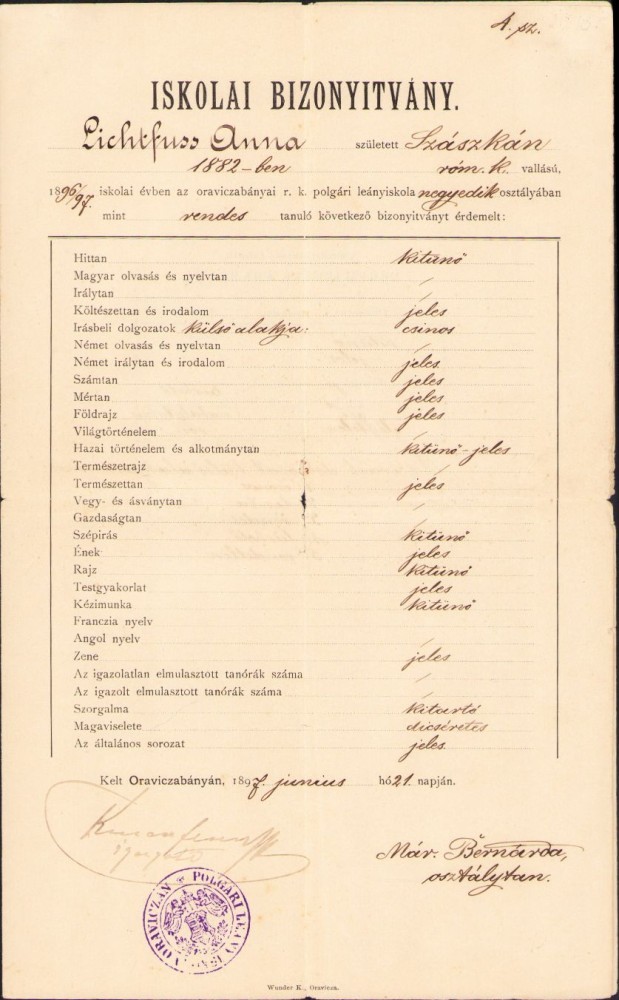 4. sz.
ISKOLAI BIZONYITVÁNY.
Lichtfuss Anna született Szászkán
1882-ben róm. k. vallású,
1896/97. iskolai évben az oraviczabányai r. k. polgári leányiskola negyedik osztályában
mint rendes tanuló következő bizonyitványt érdemelt:
Hittan kitünő
Magyar olvasás és nyelvtan /
Irálytan /
Költészettan és irodalom jeles
Irásbeli dolgozatok külső alakja: csinos
Német olvasás és nyelvtan /
Német irálytan és irodalom jeles
Számtan jeles
Mértan jeles
Földrajz jeles
Világtörténelem /
Hazai történelem és alkotmánytan kitünő-jeles
Természetrajz /
Természettan jeles
Vegy- és ásványtan /
Gazdaságtan /
Szépirás kitünő
Ének jeles
Rajz kitünő
Testgyakorlat jeles
Kézimunka kitünő
Franczia nyelv
Angol nyelv /
Zene jeles
Az igazolatlan elmulasztott tanórák száma /
Az igazolt elmulasztott tanórák száma /
Szorgalma kitartó
Magaviselete dicséretes
Az általános sorozat jeles.
Kelt Oraviczabányán, 1897. junius hó 21. napján.
igazgató
Már. Bernárda,
osztálytan.
ORAVICZAN POLGÁRI LEÁNY
Wunder K., Oravicza.